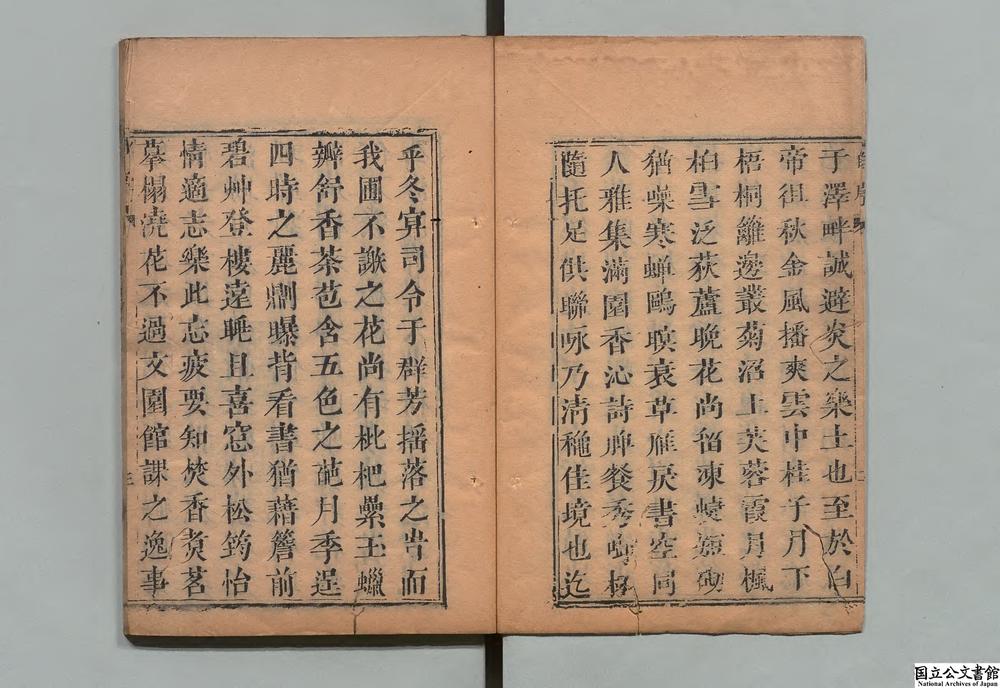 于澤畔誠避炎之樂土也至於白
帝徂秋金風播爽雲中桂子月下
梧桐籬邊叢菊沼上芙蓉霞月楓
柏雪泛荻蘆晚花尚留凍蝶短砌
猶噪寒蟬鷗暝衰草雁戾書空同
人雅集滿園香沁詩脾餐秀啣杯
隨托足供聯咏乃清穐佳境也迄
乎冬冥司令于群芳搖落之旹而
我圃不謝之花尚有枇杷纍玉蠟
瓣舒香茶苞含五色之葩月季逞
四時之麗則曝背看書猶藉簷前
碧艸登樓遠眺且喜窓外松筠怡
情適志樂此忘疲要知焚香煑茗
摹榻澆花不過文園館課之逸事
国立公文書館
National Archives of Japan